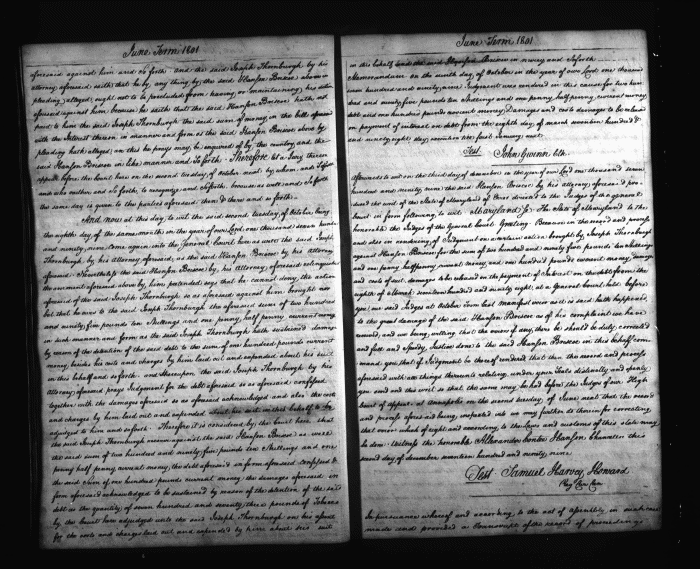 June Term 1801
aforesaid against him and so forth. and the said Joseph Thornburgh by his
attorney aforesaid saith that he by any thing by the said Hanson Briscoe above in
pleading alleged ought not to be precluded from having or maintaining his action
aforesaid against him because he saith that the said Hanson Briscoe hath not
paid to him the said Joseph Thornburgh the said sum of money in the bill aforesaid
with the interest thereon in manner and form as the said Hanson Briscoe above by
pleading hath alledged, and this he prays may be enquired of by the country and the
said Hanson Briscoe in like manner and so forth. Therefore let a Jury thereon
appear before the court here on the second tuesday of October next by whom and so forth
and who neither and so forth to recognize and so forth because as well and so forth
the same day is given to the parties aforesaid then & there and so forth
And now at this day to wit the said second tuesday of October being
the eighth day of the same month in the year of our Lord one thousand seven hundred
and ninety nine come again into the General court here as well the said Joseph
Thornburgh by his attorney aforesaid as the said Hanson Briscoe by his attorney
aforesaid. Nevertheless the said Hanson Briscoe by his attorney aforesaid relinquishing
the averment aforesaid above by him pretended says that he cannot deny the action
aforesaid of the said Joseph Thornburgh so as aforesaid against him brought nor
but that he owes to the said Joseph Thornburgh the aforesaid sum of two hundred
and ninety five pounds ten shillings and one penny half penny current money
in such manner and form as the said Joseph Thornburgh hath sustained damage
by reason of the detention of the said debt to the sum of one hundred pounds current
money besides his costs and charges by him laid out and expended about his suit
in this behalf and so forth. and thereupon the said Joseph Thornburgh by his
Attorney aforesaid prays Judgment for the debt aforesaid so as aforesaid confessed
together with the damages aforesaid so as aforesaid acknowledged and also the costs
and charges by him laid out and expended about his suit in this behalf to be
adjudged to him and so forth. Therefore it is considered by the court here that
the said Joseph Thornburgh recover against the said Hanson Briscoe as well
the said sum of two hundred and ninety five pounds ten shillings and one
penny half penny current money the debt aforesaid in form aforesaid confessed &
the said sum of one hundred pounds current money the damages aforesaid in
form aforesaid acknowledged to be sustained by reason of the detention of the said
debt as the quantity of seven hundred and seventy three pounds of tobacco
by the court here adjudged unto the said Joseph Thornburgh on his assent
for the costs and charges laid out and expended by him about his suit
June Term 1801
in this behalf and the said Hanson Briscoe in mercy and so forth
Memorandum on the ninth day of October in the year of our Lord one thousand
seven hundred and ninety nine Judgment was rendered in this cause for two hun
dred and ninety five pounds ten shillings and one penny half penny current money
debt and one hundred pounds current money Damages and costs damages to be released
on payment of interest on debt from the eighth day of march seventeen hundred &
and ninety eight day seventeen
Test. John Gwinn Clk.
Afterwards to wit on the third day of december in the year of our Lord one thousand seven
hundred and ninety nine the said Hanson Briscoe by his attorney aforesaid pro
duced the writ of the State of Maryland of Error directed to the Judges of the general
Court in form following to wit. Maryland Sc. The State of Maryland to the
honorable the Judges of the General court Greeting. Because in the record and process
and also in rendering of Judgment on a certain action brought by Joseph Thornburgh
against Hanson Briscoe for the sum of two hundred and ninety five pounds ten shillings
and one penny half penny current money and one hundred pounds current money damages
and costs of suit, damages to be released on the payment of interest on the debt from the
eighth of March seventeen hundred and ninety eight, at a General court held before
you our said Judges at October Term last manifest error as it is said hath happened
to the great damage of the said Hanson Briscoe as of his complaint we have
received, and we being willing that the error if any there be should be duly corrected
and full and speedy Justice done to the said Hanson Briscoe in this behalf com
mand you that if Judgment be thereof rendered that then the record and process
aforesaid with all things thereunto relating, under your Seals distinctly and openly
you send and this writ so that the same may be had before the Judges of our High
Court of appeals at Annapolis on the second tuesday of June next that the record
and process aforesaid being inspected we may further do therein for correcting
that error what of right and according to the Laws and customs of this state may
be done. Witness the honorable Alexander Contee Hanson Chancellor this
second day of december seventeen hundred and ninety nine.
Test. Samuel Harvey Howard
Reg Cur Can
In pursuance whereof and according to the act of assembly in such case
made and provided a Transcript of the record of proceedings